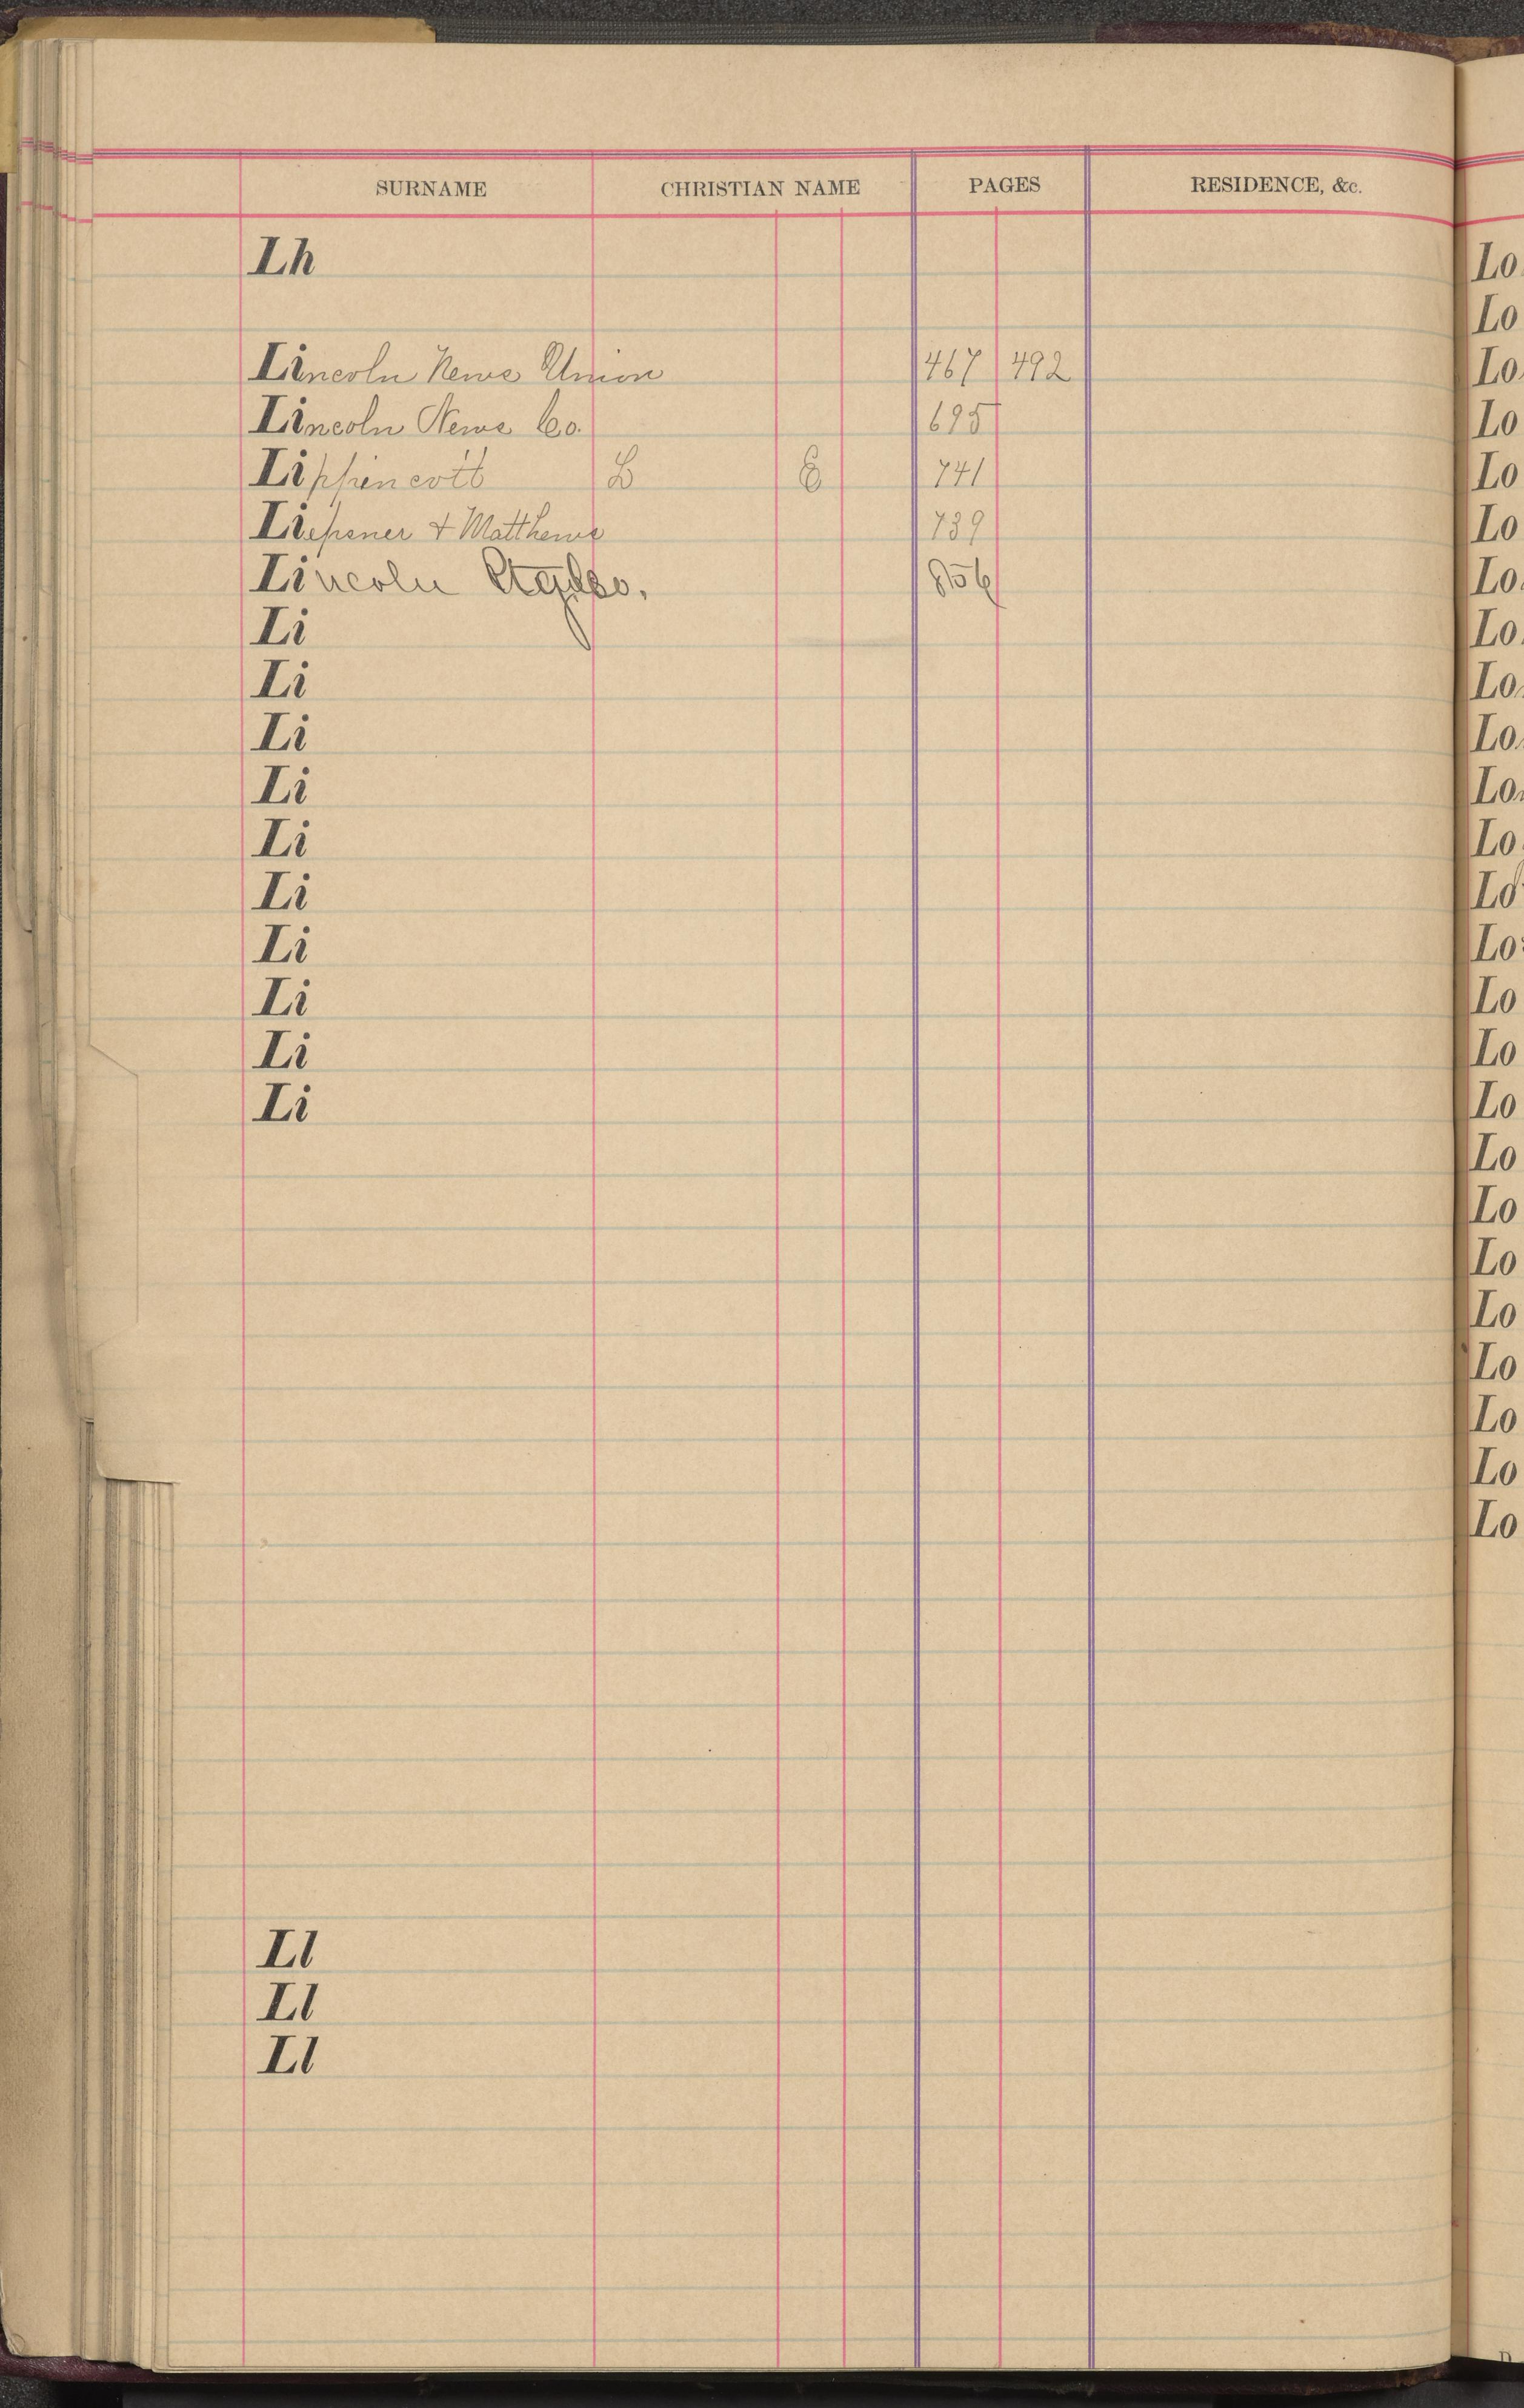 SURNAME CHRISTIAN NAME PAGES RESIDENCE, &c.
Lh
Lincoln News Union 467 492
Lincoln News Co. 695
Lippincott L E 741
Liepsner & Matthews 739
Lincoln Co. 856
Li
Li
Li
Li
Li
Li
Li
Li
Li
Li
Ll
Ll
Ll
Lo
Lo
Lo
Lo
Lo
Lo
Lo
Lo
Lo
Lo
Lo
Lo
Lo
Lo
Lo
Lo
Lo
Lo
Lo
Lo
Lo
Lo
Lo
Lo
Lo